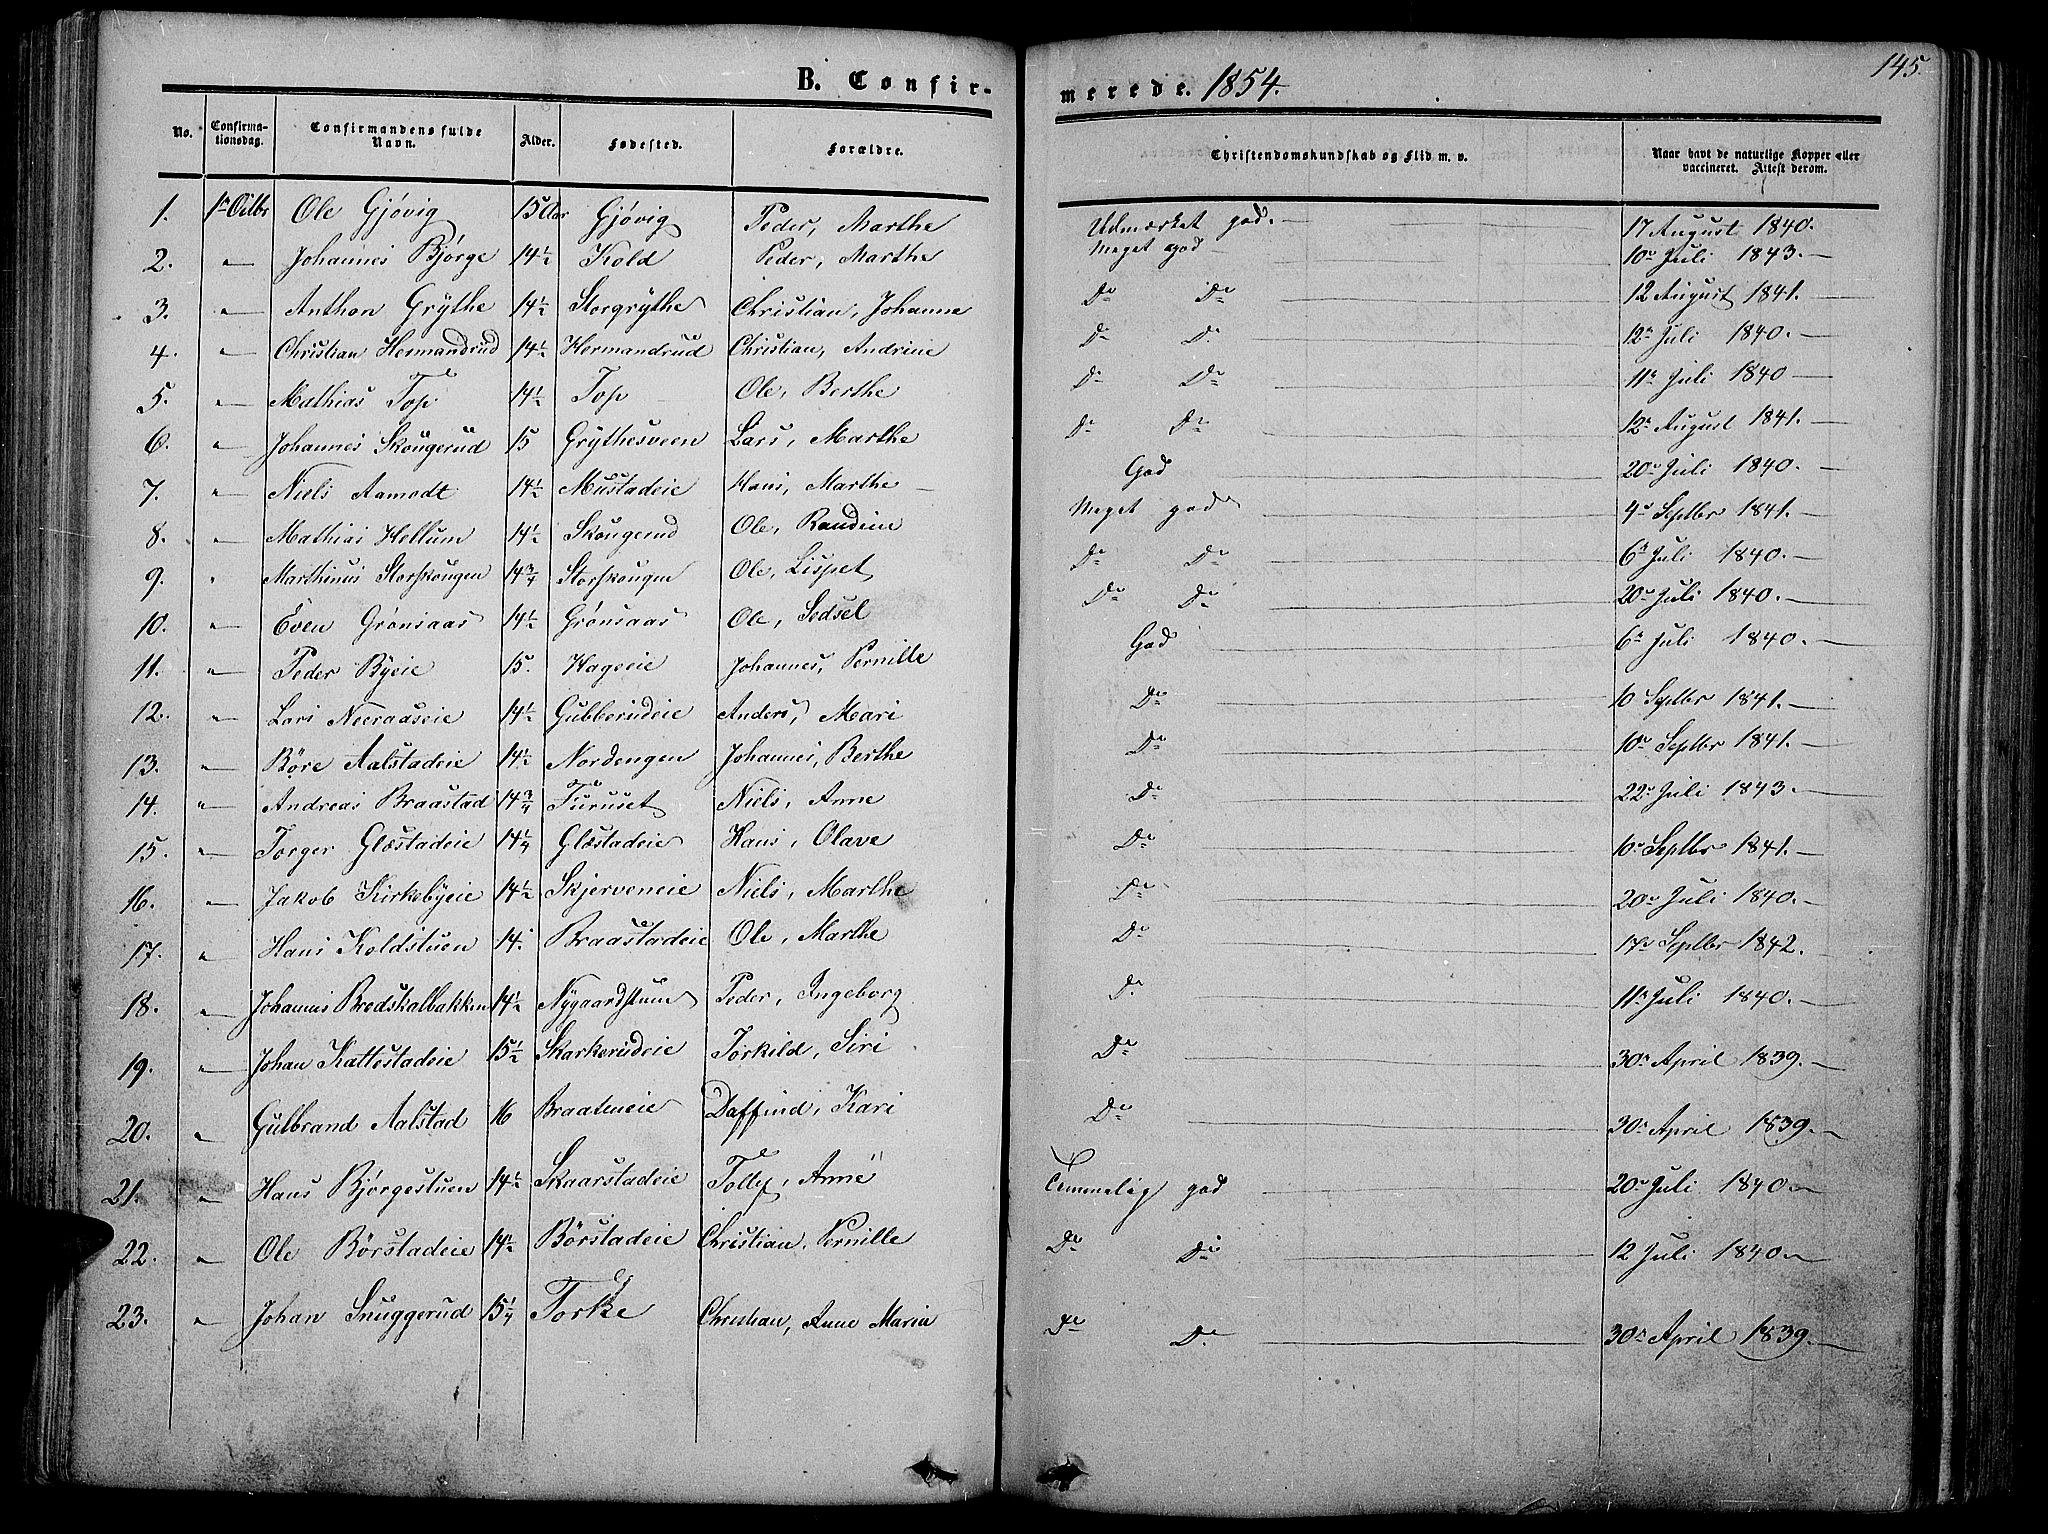 145.
B. Confirmerede. 1854.
No. Confirmationsdag. Confirmandens fulde Navn. Alder. Fødested. Forældre. Christendomskundskab og Flid m. v. Naar havt de naturlige Kopper eller vaccineret. Attest derom.
1. 1n Octbr Ole Gjøvig 15 Aar Gjøvig Peder, Marthe Udmærket god. 17 August 1840.
2. " Johannes Bjørge 14½ Kold Peder, Marthe Meget god 10n Juli 1843.
3. " Anthon Grythe 14½ Storgrythe Christian, Johanne Do Do 12 August 1841.
4. " Christian Hermandrud 14½ Hermandrud Christian, Andrine Do Do 12n Juli 1840.
5. " Mathias Top 14½ Top Ole, Berthe Do Do 11n Juli 1840
6. " Johannes Skougerud 15 Grythesveen Lars, Marthe Do Do 12n August 1841.
7. " Niels Aamodt 14½ Mustadeie Hans, Marthe God 20n Juli 1840.
8. " Mathias Hellum 14½ Skougerud Ole, Randine Meget god 4n Septbr 1841.
9. " Marthinus Storskougen 14¾ Storskougen Ole, Lispet Do Do 6n Juli 1840.
10. " Even Grønsaas 14½ Grønsaas Ole, Sedsel Do Do 20n Juli 1840.
11. " Peder Byeie 15. Hageeie Johannes, Pernille God 6n Juli 1840.
12. " Lars Neeraaseie 14½ Gubberudeie Anders, Mari Do 10 Septbr 1841.
13. " Børe Aalstadeie 14½ Nordengen Johannes, Berthe Do 10n Septbr 1841.
14. " Andreas Braastad 14¾ Furuset Niels, Anne Do 22n Juli 1843.
15. " Torger Glæstadeie 14¼ Glæstadeie Hans, Olave Do 10n Septbr 1841.
16. " Jakob Kirkebyeie 14½ Skjerveneie Niels, Marthe Do 20n Juli 1840.
17. " Hans Koldstuen 14. Braastadeie Ole, Marthe Do 17n Septbr 1842.
18. " Johannes Bredskalbakken 14½ Nygaardstuen Peder, Ingeborg Do 11n Juli 1840.
19. " Johan Kattestadeie 15½ Skarkerudeie Torkild, Siri Do 30n April 1839.
20. " Gulbrand Aalstad 16 Braateneie Daffind, Kari Do 30n April 1839.
21. " Hans Bjørgestuen 14½ Skaarstadeie Tolly, Anne Temmelig god 20n Juli 1840
22. " Ole Børstadeie 14½ Børstadeie Christian, Pernille Do Do 12 Juli 1840
23. " Johan Snuggerud 15¼ Torke Christian, Anne Maria Do Do 30n April 1839.